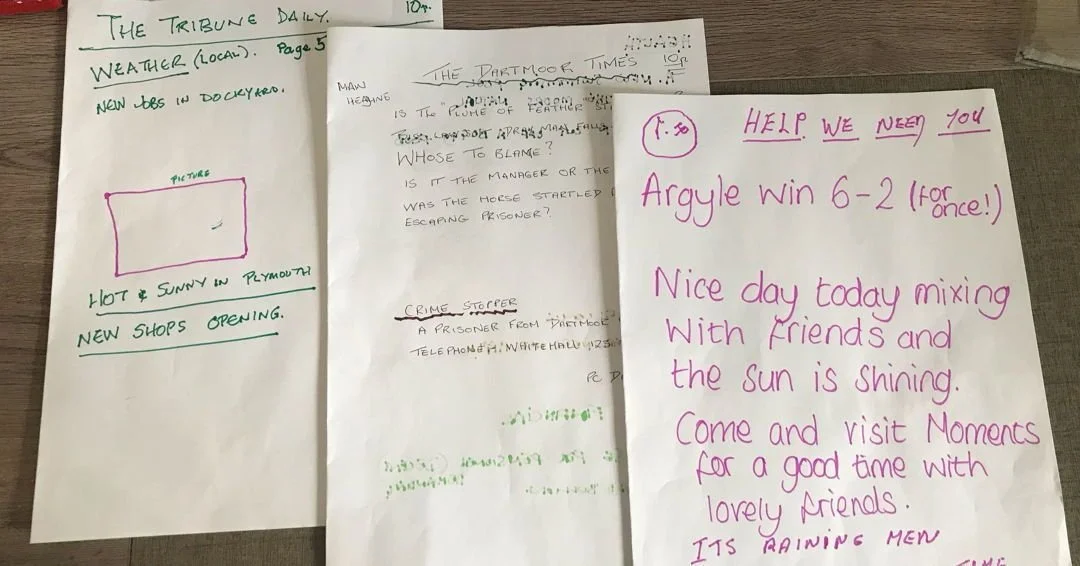 THE TRIBUNE DAILY. 10p.
WEATHER (LOCAL). Page 5
NEW JOBS IN DOCKYARD.
PICTURE
HOT & SUNNY IN PLYMOUTH
NEW SHOPS OPENING.
THE DARTMOOR TIMES 10p
MAIN
HEADLINE
IS THE "PLUME OF FEATHER"
MAN FALLS
WHOSE TO BLAME?
IS IT THE MANAGER OR THE
WAS THE HORSE STARTLED
ESCAPING PRISONER?
CRIME STOPPER
A PRISONER FROM DARTMOOR
TELEPHONE WHITEHALL 123
PC
1.50
HELP WE NEED YOU
Argyle win 6-2 (for
once!)
Nice day today mixing
with friends and
the sun is shining.
Come and visit Moments
for a good time with
lovely friends.
ITS RAINING MEN
TIME